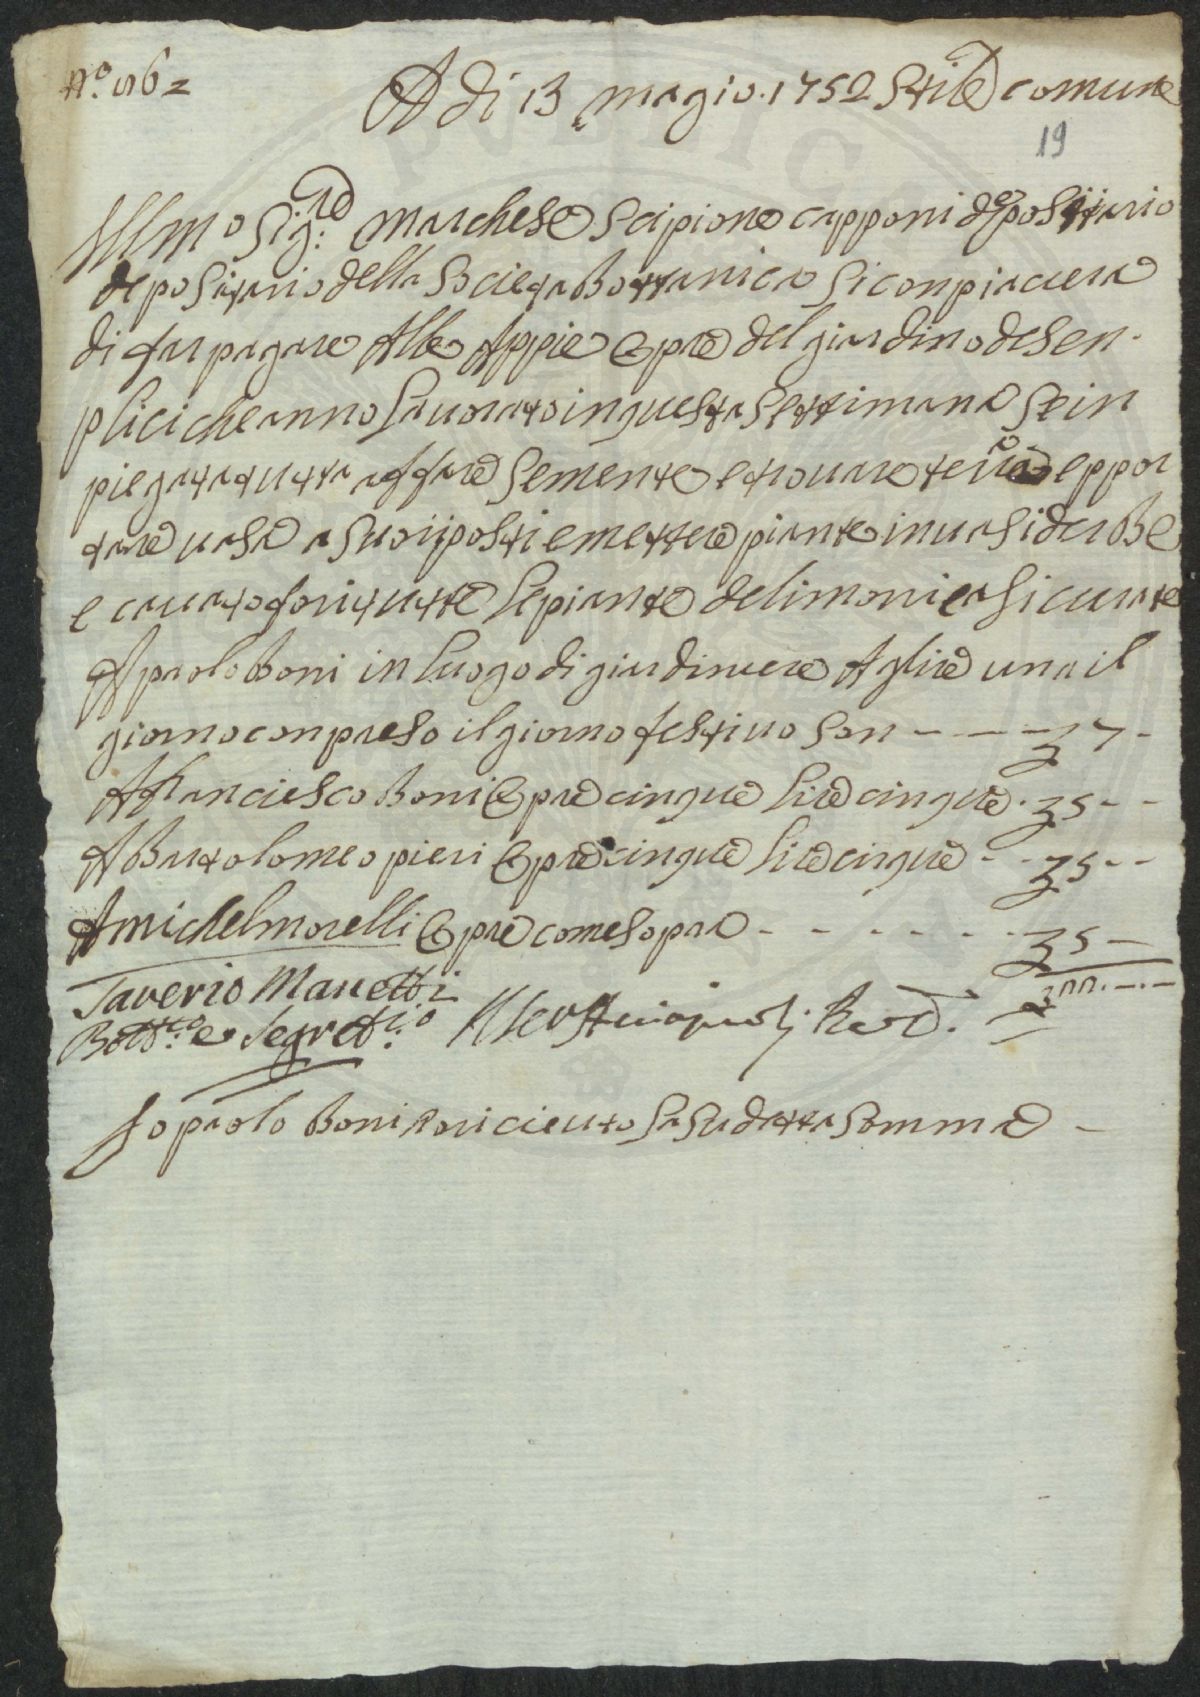 N.o 162
A di 13 magio. 1752 Stile comune
19
Illmo Sig.re Marchese Scipione capponi depositario
depositario della Societa Bottanica Si conpiacera
di far pagare Alle Appie Opre del giardino de Sen-
plici che anno Lavorato in questa Settimana Se in
piegata tutta a ffare Semente e trovare terra e ppor
tare vasa a Suoi posti e mettere piante in vasi derbe
e cavato fori tutte le piante de limoni e Si curate
A paolo Boni in luogo di giardiniere A Lire una il
giorno conpreso il giorno festivo Son — — — 7 -
A franciesco Boni Opre cinque Lire cinque . 5 - -
A Bartolomeo pieri Opre cinque Lire cinque - - 5 - -
A michel morelli Opre come Sopra - - - - - - 5 —
Saverio Manetti
Bott.co e Segret.io
Io paolo Boni o riceuto la Sudetta Somma -